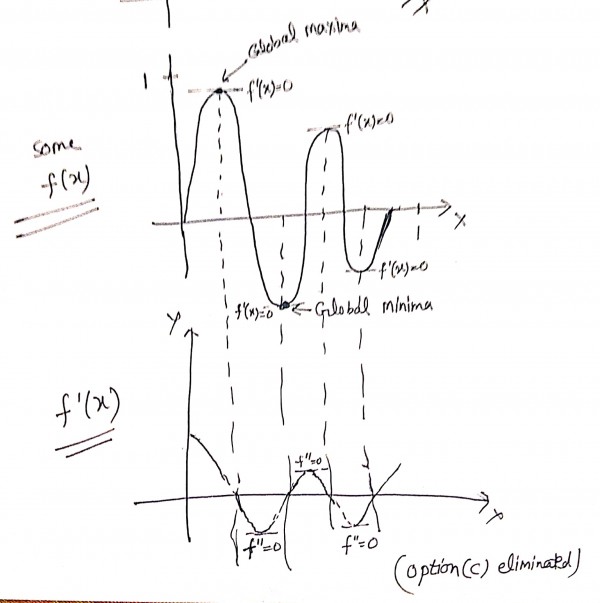 X
Global maxima
1
f'(x)=0
f'(x)=0
some
f(x)
X
f'(x)=0
f'(x)=0
Global minima
Y
f'(x)
f"=0
X
f"=0
f"=0
(option(c) eliminated)